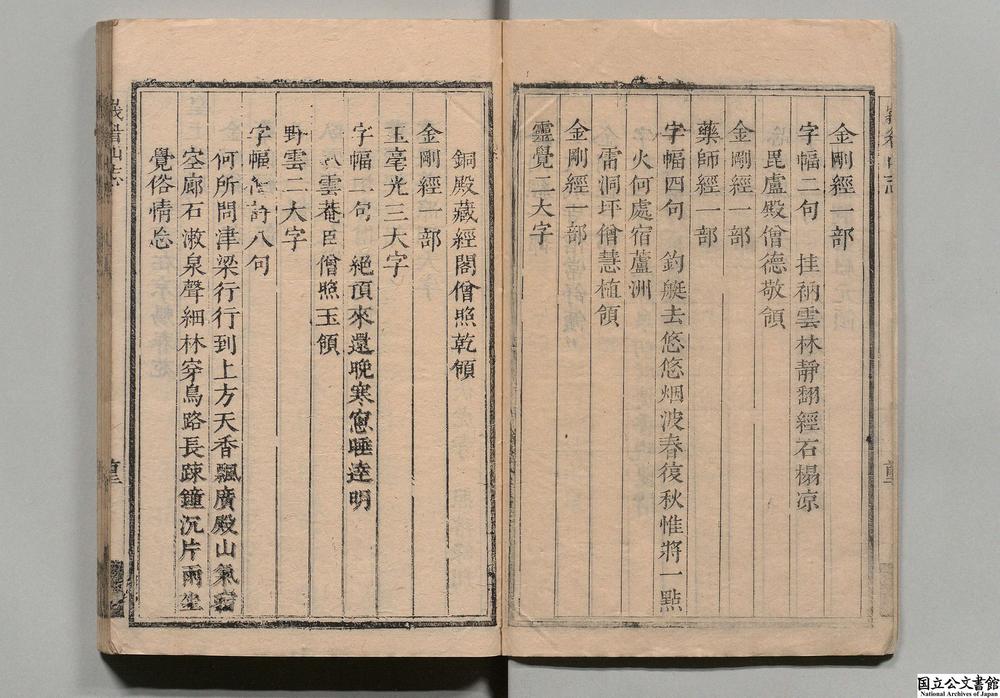 金剛經一部
字幅二句 挂衲雲林靜翻經石榻凉
毘盧殿僧德敬領
金剛經一部
藥師經一部
字幅四句 釣艇去悠悠烟波春復秋惟將一點
火何處宿蘆洲
雷洞坪僧慧植領
金剛經一部
靈覺二大字
銅殿藏經閣僧照乾領
金剛經一部
玉毫光三大字
字幅二句 絕頂來還晚寒窻睡達明
卧雲菴臣僧照玉領
野雲二大字
字幅 詩八句
何所問津梁行行到上方天香飄廣殿山氣
空廊石漱泉聲細林穿鳥路長疎鐘沉片雨坐
覺俗情忘
山志
国立公文書館
National Archives of Japan